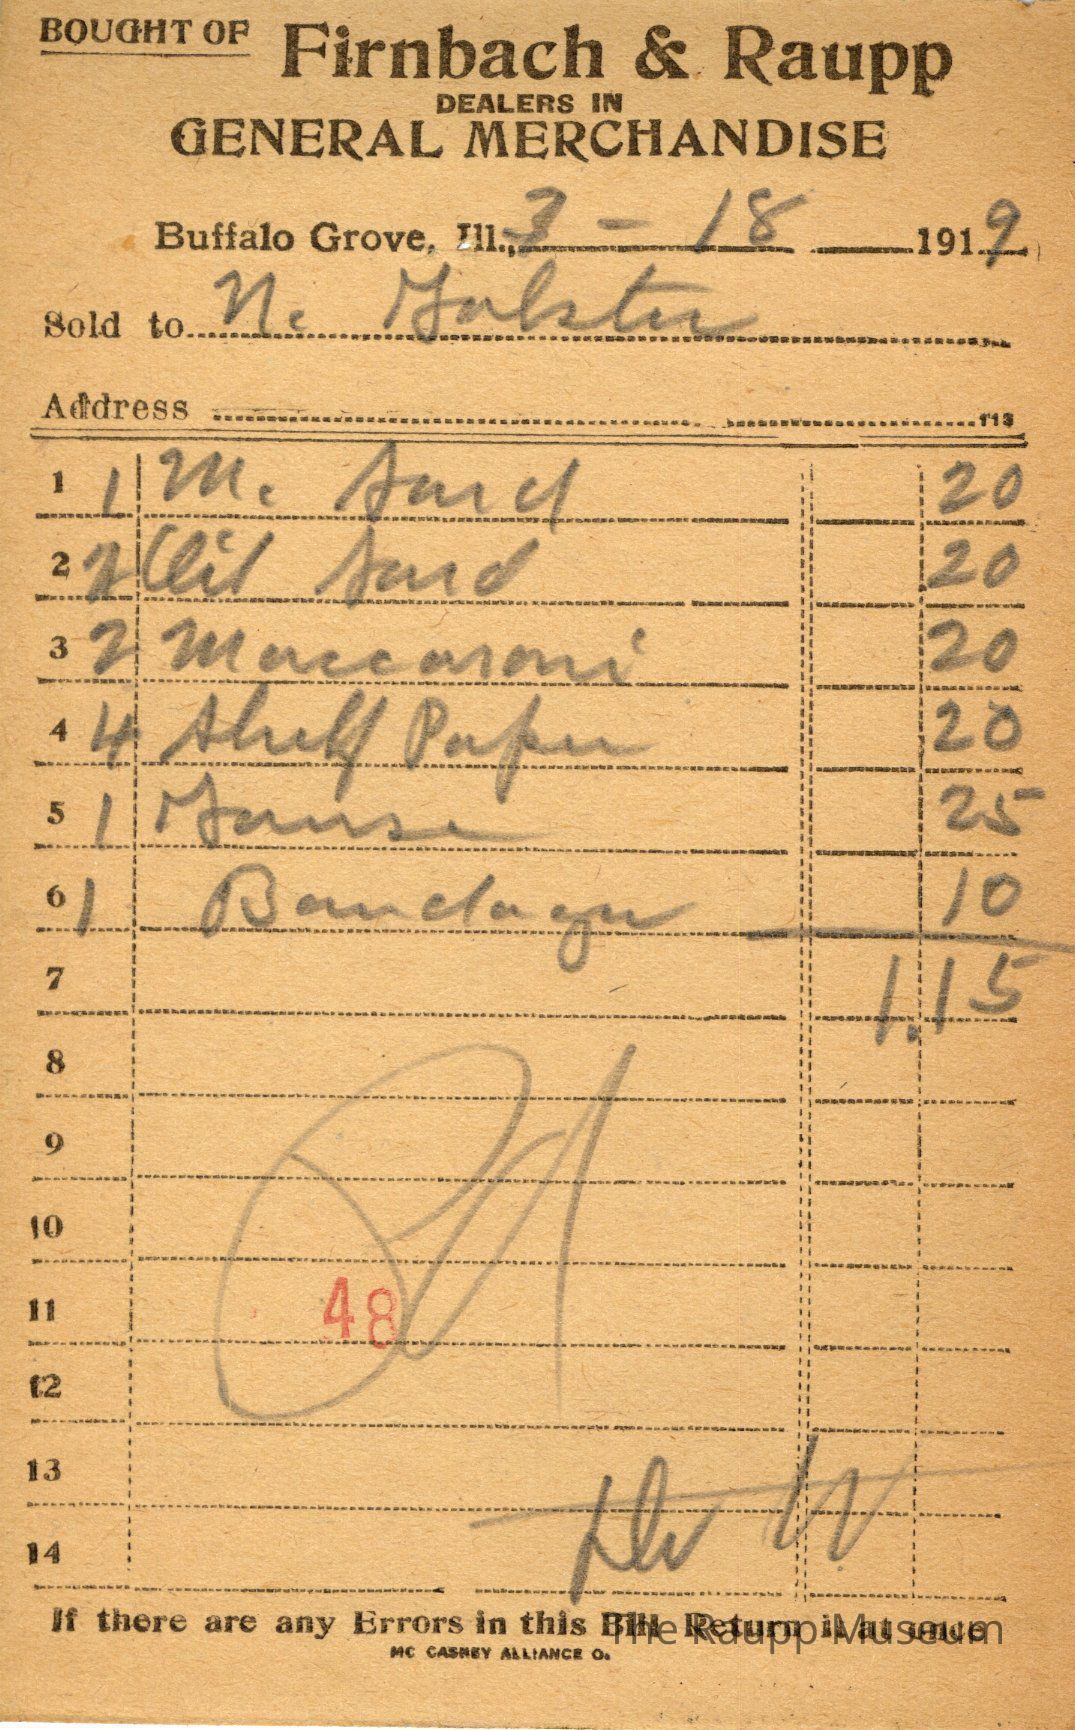 BOUGHT OF Firnbach & Raupp
DEALERS IN
GENERAL MERCHANDISE
Buffalo Grove, Ill., 3 - 18 1919
Sold to N.
Address 113
1 1 M. Sard 20
2 2 Oil Sard 20
3 2 Maccaroni 20
4 4 Shelf Paper 20
5 1 Gause 25
6 1 Bandage 10
7 1.15
8
9
10
11 48
12
13
14
If there are any Errors in this Bill Return it at once
The Raupp Museum
MC CASKEY ALLIANCE O.